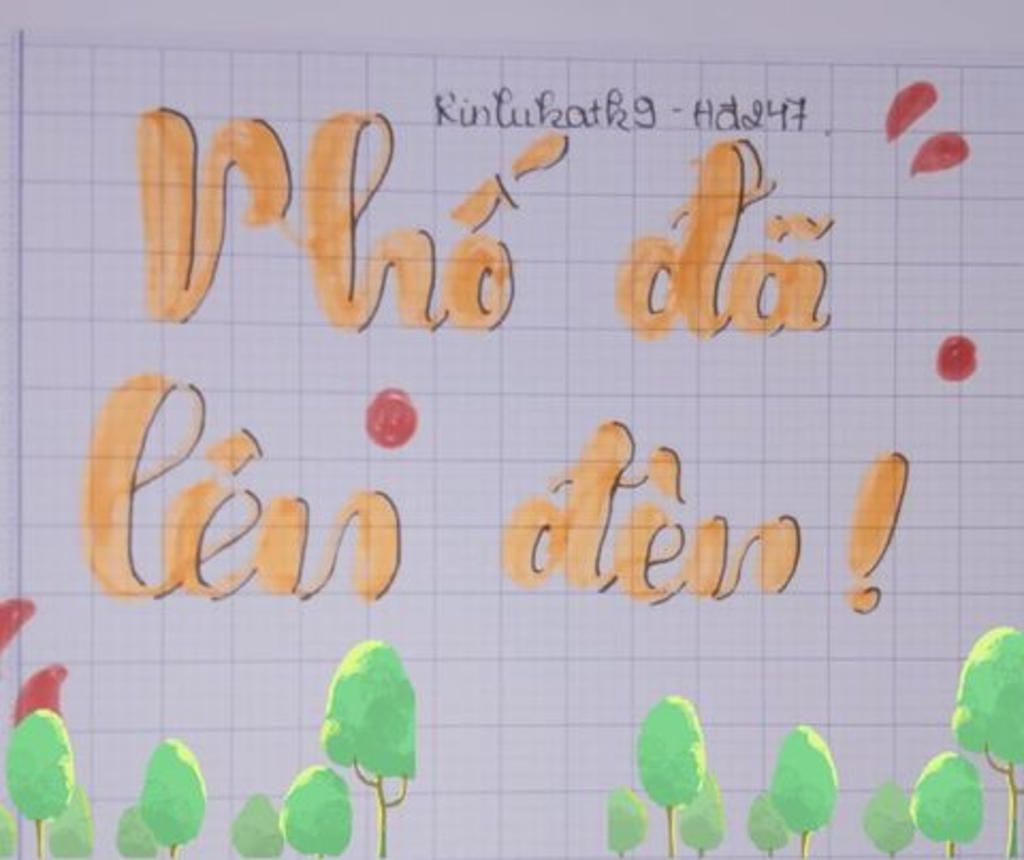 Kinlukatk9 - Hd247.
Phố đã
lên đèn!